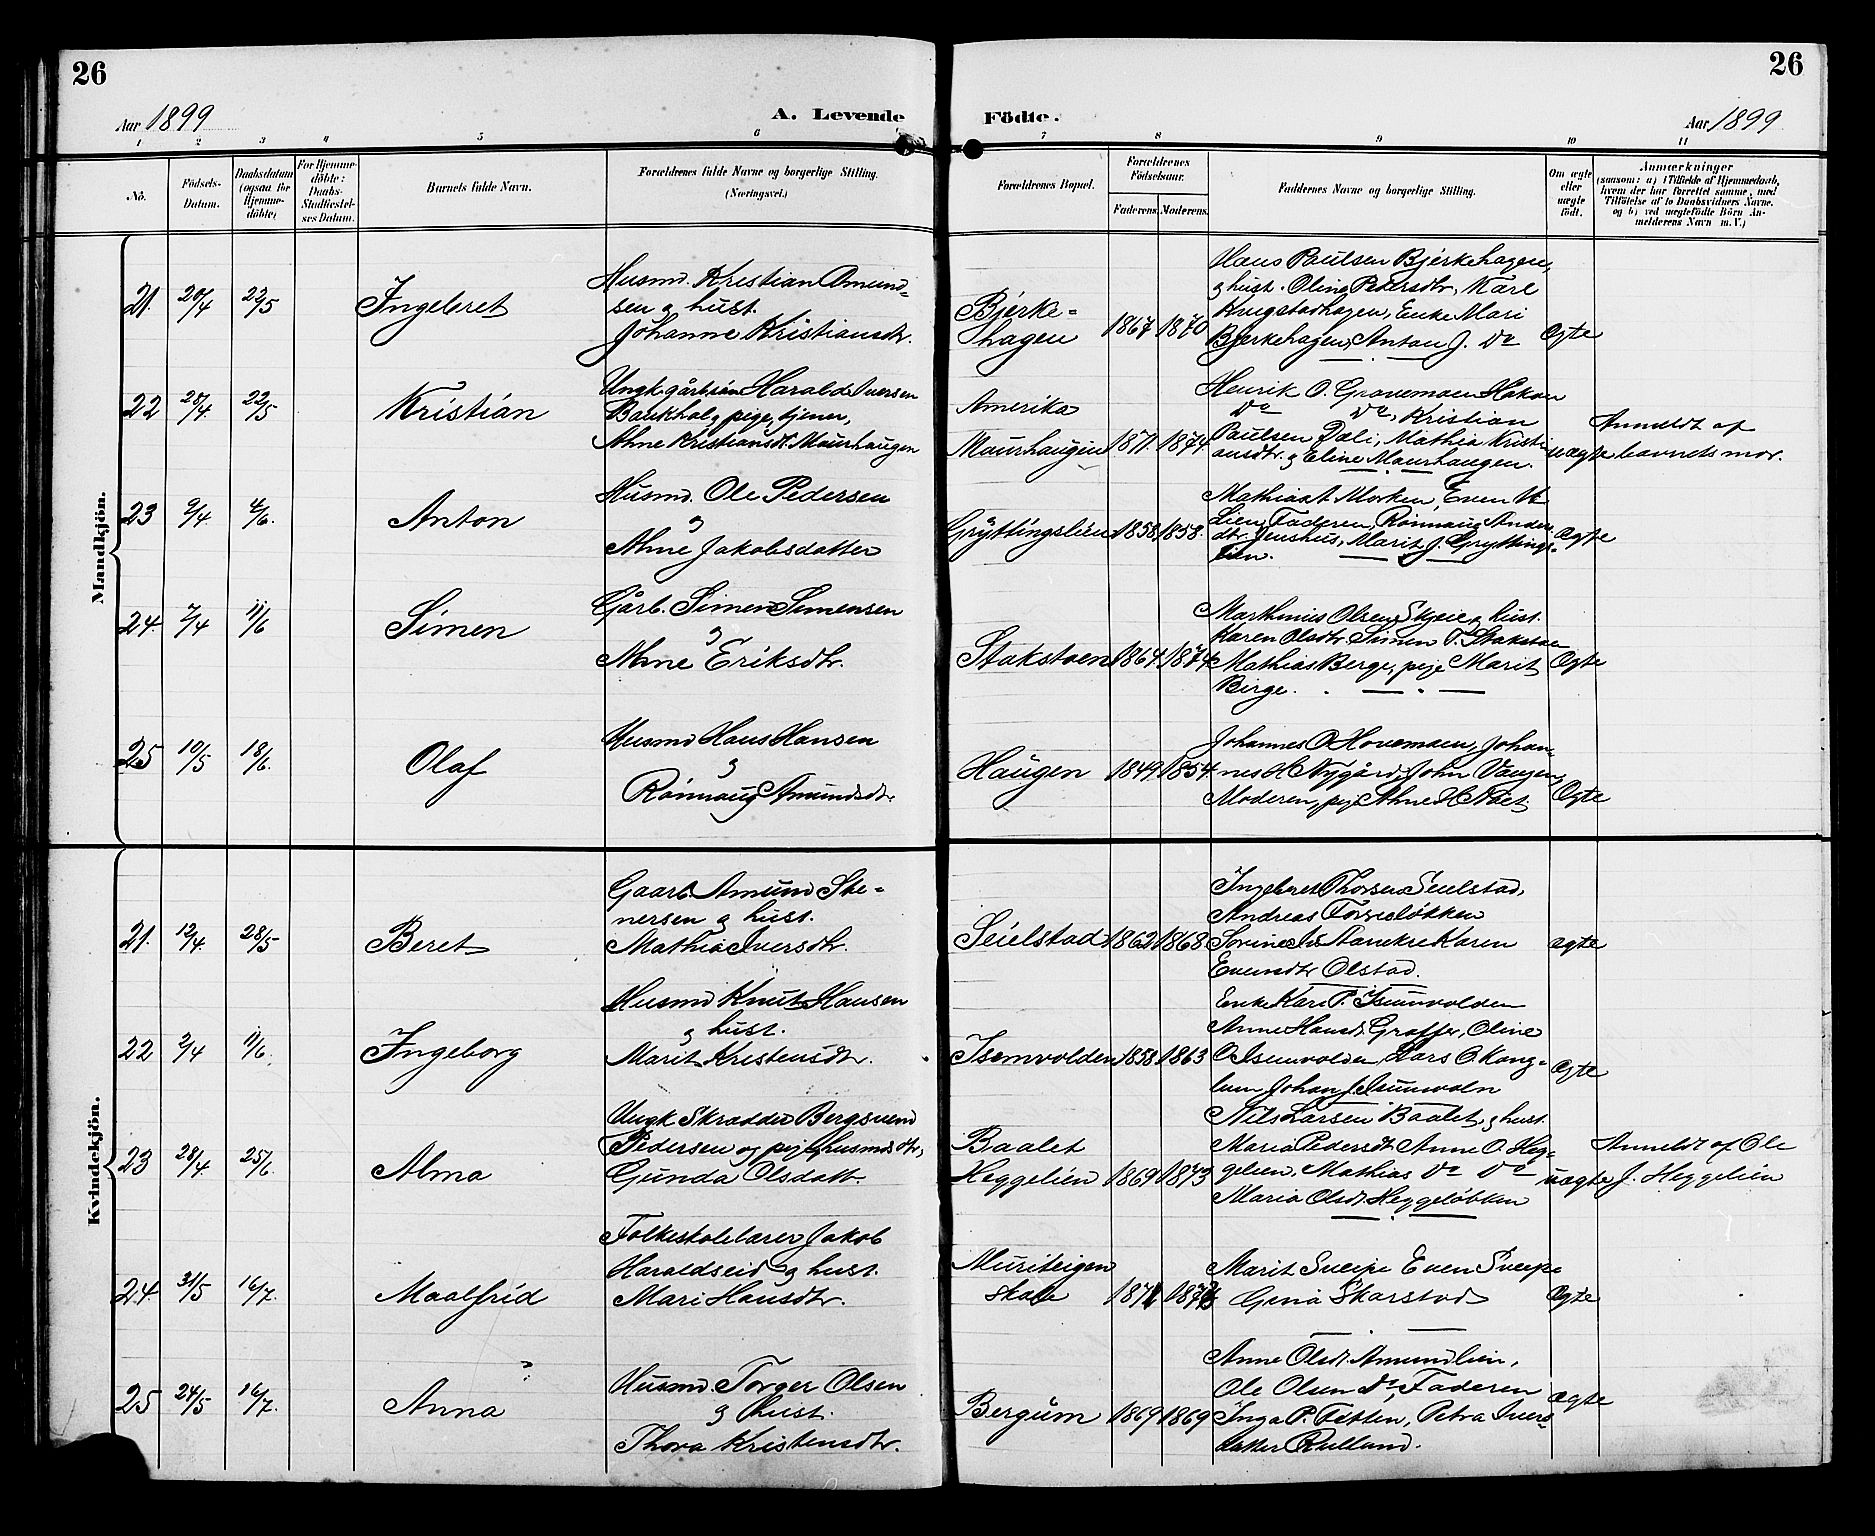 26
26
Aar 1899
A. Levende
Födte.
Aar 1899.
1 2 3 4 5 6 7 8 9 10 11
No.
Födsels-
Datum.
Daabsdatum
(ogsaa for
Hjemme-
döbte)
For Hjemme-
döbte:
Daabs-
Stadfæstel-
ses Datum.
Barnets fulde Navn.
Forældrenes fulde Navne og borgerlige Stilling.
(Næringsvei.)
Forældrenes Bopæl.
Forældrenes
Födselsaar.
Faderens.
Moderens.
Faddernes Navne og borgerlige Stilling.
Om ægte
eller
uægte
födt.
Anmærkninger
(saasom: a) i Tilfælde af Hjemmedaab,
hvem der har forrettet samme, med
Tilföielse af to Daabsvidners Navne.
og b) ved uægtefödte Börn An-
melderens Navn m. V.)
Mandkjön.
21. 20/4 22/5 Ingebret
Husmd. Kristian Amund-
sen g hust.
Johanne Kristiansdtr.
Bjerke-
hagen
1867 1870
Hans Paulsen Bjerkehagen,
g hust. Oline Pedersdtr, Kari
Krugstadhagen, Enke Mari
Bjerkehagen, Anton J. Do
Ægte
22 20/4. 22/5 Kristian
Ungk. gårbrsøn Harald Iversen
Baukhol g pige, tjener,
Ahne Kristiansdt. Maurhaugen
Amerika
Maurhaugen
1871. 1874.
Henrik O. Gravemoen Håkon
Do Do, Kristian
Paulsen Dæli, Mathia Kristi-
ansdtr. g Eline Maurhaugen.
uægte
Anmeldt af
barnets mor.
23 9/4 4/6. Anton
Husmd. Ole Pedersen
g
Ahne Jakobsdatter
Gryttingslien
1858 1858.
Mathias A Morken, Even
Lien, Faderen, Rønnaug Anders-
dtr. Jenshus, Marit J. Gryttings-
lien.
Ægte
24. 7/4 11/6 Simen
Gårb. Simen Simensen
g
Ahne Eriksdtr.
Stakstoen
1864 1874
Marthinus Olsen Skjeie g hust.
Karen Olsdtr. Simen T. Stakstoen
Mathias Berge, pige Marit
Berge.
Ægte
25 10/5 18/6. Olaf
Husmd Hans Hansen
g
Rønnaug Amundsdtr.
Haugen
1849 1854
Johannes O Hovemoen, Johan-
nes H Nygård, John Vangen,
Moderen, pige Ahne H.
Ægte
Kvindekjön.
21. 12/4. 28/5 Beret
Gaarb. Amund Ste-
nersen g hust.
Mathia Iversdtr.
Seielstad
1862 1868
Ingebret Thorsen Seielstad,
Andreas
Sorine Karen
Evensdtr Olstad.
ægte
22 2/4 11/6. Ingeborg
Husmd Knut Hansen
g hust.
Marit Kristensdtr.
Isumvolden
1858 1863
Enke Kari P. Isumvolden
Anne Hansdt. Graffer, Oline
O Isumvolden, Lars O. Kong-
Johan J. Isumvoln
Ægte
23 28/4. 25/6. Alma
Ungk Skrædder Bergsvend
Pedersen og pige husmdsdtr,
Gunda Olsdatter
Baalet
Heggelien
1869 1873
Nils Larsen Baalet, g hust.
Maria Pedersdt. Anne O. Heg-
gelien, Mathias Do Do
Maria Olsdt. Heggeløkken
uægte
Anmeldt af Ole
J. Heggelien
24. 31/5 16/7. Maalfrid
Folkeskolelærer Jakob
Haraldseid g hust.
Mari Hansdtr.
Muriteigen
Skole
1871
Marit Sveipe Even Sveipe
Gina Skarstad
Ægte
25 24/5 16/7. Anna
Husmd. Torger Olsen
g hust.
Thora Kristensdtr.
Bergum
1869 1869
Anne Olsdt. Amundlien,
Ole Olsen Do, Faderen
Inga P. Fetten, Petra Ivers-
datter Rulland.
ægte